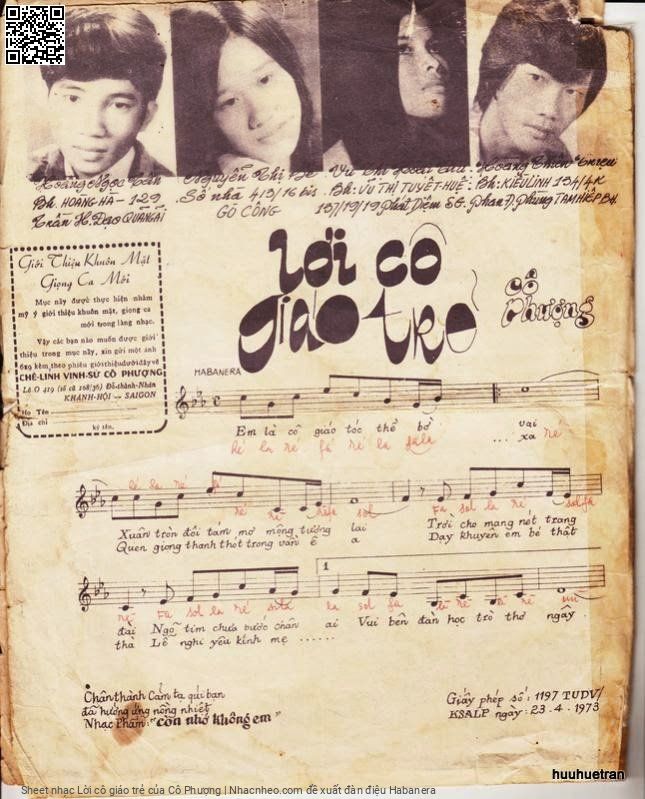 Hoàng Ngọc Ẩn
Bh. HOÀNG HA - 129
Trần H. Đạo QUANGAI
Nguyễn Thi Be
Số nhà 413/16 bis
GÒ CÔNG
Bh: VŨ THỊ TUYẾT HUÊ
157/19/19 Phát Diệm SG.
Bh: KIỀU LINH 154/4K
Phan Đ. Phùng TAM HIỆP BH.
Giới Thiệu Khuôn Mặt
Giọng Ca Mới
Mục này được thực hiện nhằm
mỹ ý giới thiệu khuôn mặt, giọng ca
mới trong làng nhạc.
Vậy các bạn nào muốn được giới
thiệu trong mục này, xin gửi một ảnh
ống kèm theo phiếu giới thiệu dưới đây về
CHẾ-LINH VINH-SỬ CÔ PHƯỢNG
Lô O 419 (số cũ 168/36) Đỗ-thành-Nhân
KHÁNH-HỘI — SAIGON
Họ Tên
Địa chỉ
ký tên,
Lời cô
giáo trẻ
cô
Phượng
HABANERA
Em là cô giáo tóc thề bờ vai
... xa
Xuân tròn đôi tám mơ mộng tương lai Trời cho mang nét trang
Quen giọng thanh thót trong vần ê a Dạy khuyên em bé thật
1
đài Ngõ tim chưa bước chân ai Vui bên đàn học trò thơ ngây
thà Lễ nghi yêu kính mẹ ......
Chân thành Cảm tạ quí bạn
đã hưởng ứng nồng nhiệt
Nhạc Phẩm: "còn nhớ không em"
Giấy phép số: 1197 TUDV/
KSALP ngày: 23.4.1973
huuhuetran
Sheet nhạc Lời cô giáo trẻ của Cô Phượng | Nhacnheo.com đề xuất đàn điệu Habanera